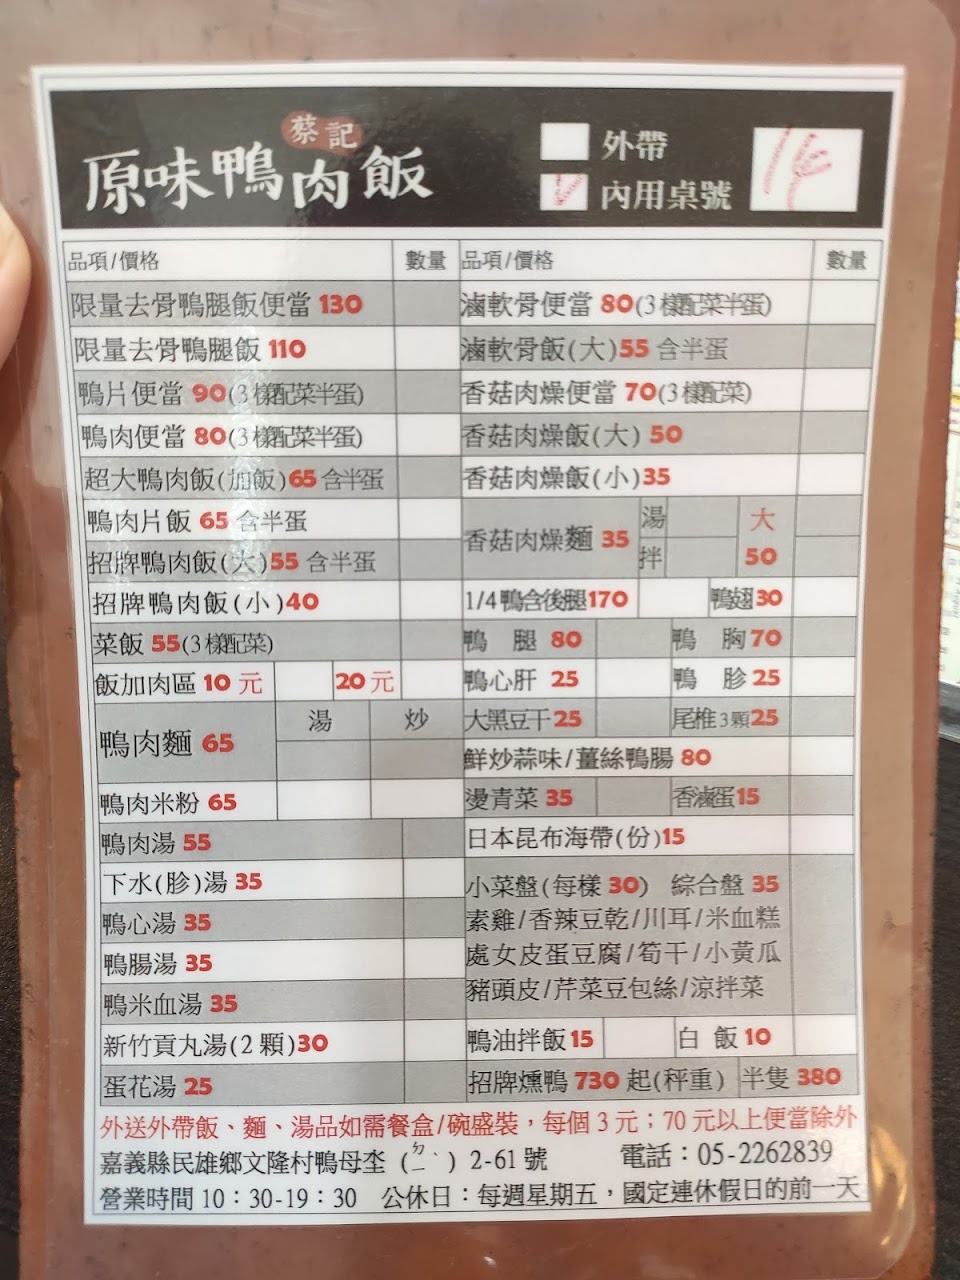 蔡記
原味鴨肉飯
外帶
內用桌號
品項/價格 數量 品項/價格 數量
限量去骨鴨腿飯便當 130
滷軟骨便當 80(3樣配菜半蛋)
限量去骨鴨腿飯 110
滷軟骨飯(大)55 含半蛋
鴨片便當 90(3樣配菜半蛋)
香菇肉燥便當 70(3樣配菜)
鴨肉便當 80(3樣配菜半蛋)
香菇肉燥飯(大) 50
超大鴨肉飯(加飯)65 含半蛋
香菇肉燥飯(小)35
鴨肉片飯 65 含半蛋
香菇肉燥麵 35 湯 拌 大 50
招牌鴨肉飯(大)55 含半蛋
招牌鴨肉飯(小)40
1/4鴨含後腿170 鴨翅30
菜飯 55(3樣配菜)
鴨 腿 80 鴨 胸70
飯加肉區 10 元 20 元
鴨心肝 25 鴨 胗25
鴨肉麵 65 湯 炒
大黑豆干25 尾椎3顆25
鮮炒蒜味/薑絲鴨腸 80
鴨肉米粉 65
燙青菜 35 香滷蛋15
鴨肉湯 55
日本昆布海帶(份)15
下水(胗)湯 35
小菜盤(每樣 30) 綜合盤 35
鴨心湯 35
素雞/香辣豆乾/川耳/米血糕
鴨腸湯 35
處女皮蛋豆腐/筍干/小黃瓜
鴨米血湯 35
豬頭皮/芹菜豆包絲/涼拌菜
新竹貢丸湯(2顆)30
鴨油拌飯15 白 飯10
蛋花湯 25
招牌燻鴨 730 起(秤重) 半隻 380
外送外帶飯、麵、湯品如需餐盒/碗盛裝，每個 3 元；70 元以上便當除外
嘉義縣民雄鄉文隆村鴨母坔(ㄉㄧˋ) 2-61 號 電話：05-2262839
營業時間 10：30-19：30 公休日：每週星期五，國定連休假日的前一天